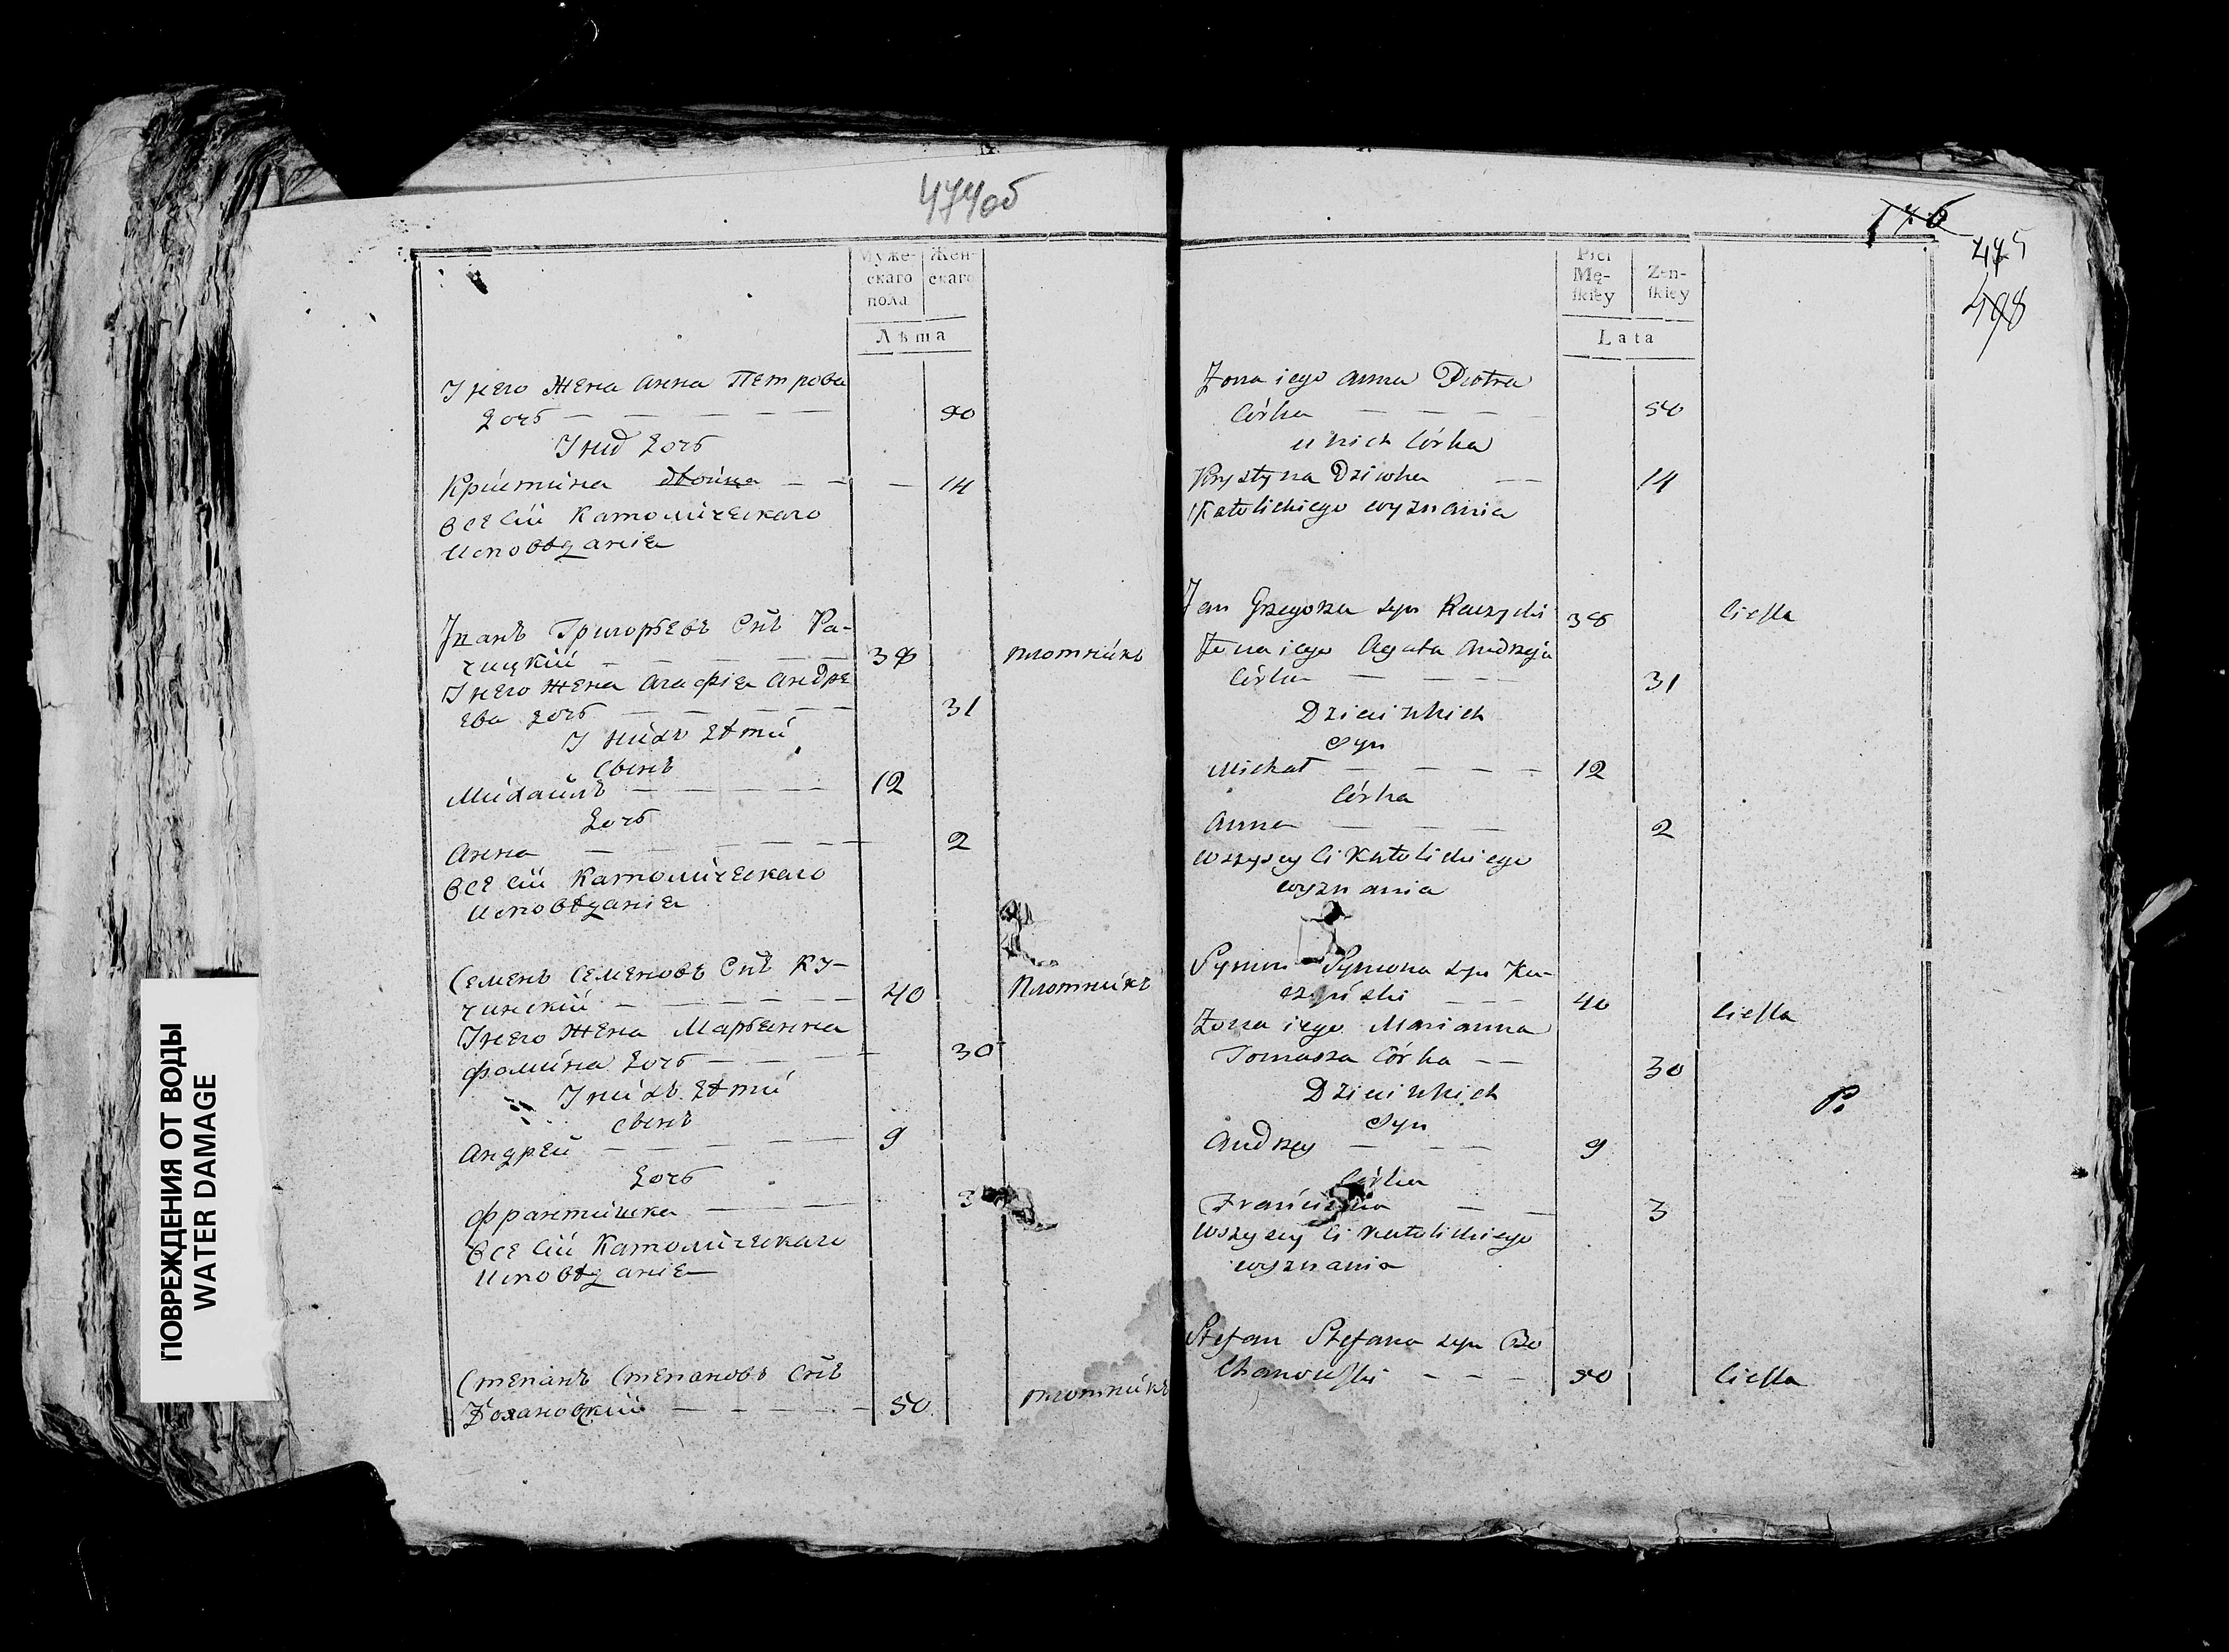 474об
Муже-
скаго
пола
Жен-
скаго
Лѣта
У него Жена Анна Петрова
дочь — — — — — 50
У ниѯ дочь
Кристина двойка — — — 14
Все сіи Католическаго
Исповѣданія
Иванъ Григорьевъ Снъ Ра-
чицкій — — — — 38 плотникъ
У него Жена Агафія Андре
ева дочь — — — — 31
У нихъ дѣти
Сынъ
Михайлъ — — — — — 12
дочь
Анна — — — — — 2
Все сіи Католическаго
Исповѣданія
Семенъ Семеновъ Снъ Ку-
чинскій — — — — — 40 Плотникъ
У него Жена Марьянна
Фомина дочь — — — 30
У нихъ дѣти
сынъ
Андрей — — — — 9
дочь
Франтишка — — — 3
Все сіи Католическаго
Исповѣданія
Степанъ Степановъ Снъ
Бохановскій — — — — — 50 плотникъ
176
475
498
Płci
Mę-
ſkiey
Zen-
ſkiey
Lata
Żona iego Anna Piotra
Córka — — — — 50
u nich Córka
Krystyna Dziwka — — 14
Katolickiego wyznania
Jan Grzegorza syn Raczycki 38 Cieſla
Żona iego Agata Andrzeja
Córka — — — — 31
Dzieci u Nich
Syn
Michał — — — — 12
Córka
Anna — — — 2
Wszyscy Ci Katolickiego
wyznania
Symon Symona syn Ku-
czyński — — — 40 Cieſla
Żona iego Marianna
Tomasza Córka — — 30
Dzieci u Nich
Syn
Andrzey — — — 9
Córka
Franciszka — — 3
Wszyscy Ci Katolickiego
wyznania
P.
Stefan Stefana syn Bo
Chanowſki — — — 50 Cieſla
ПОВРЕЖДЕНИЯ ОТ ВОДЫ
WATER DAMAGE